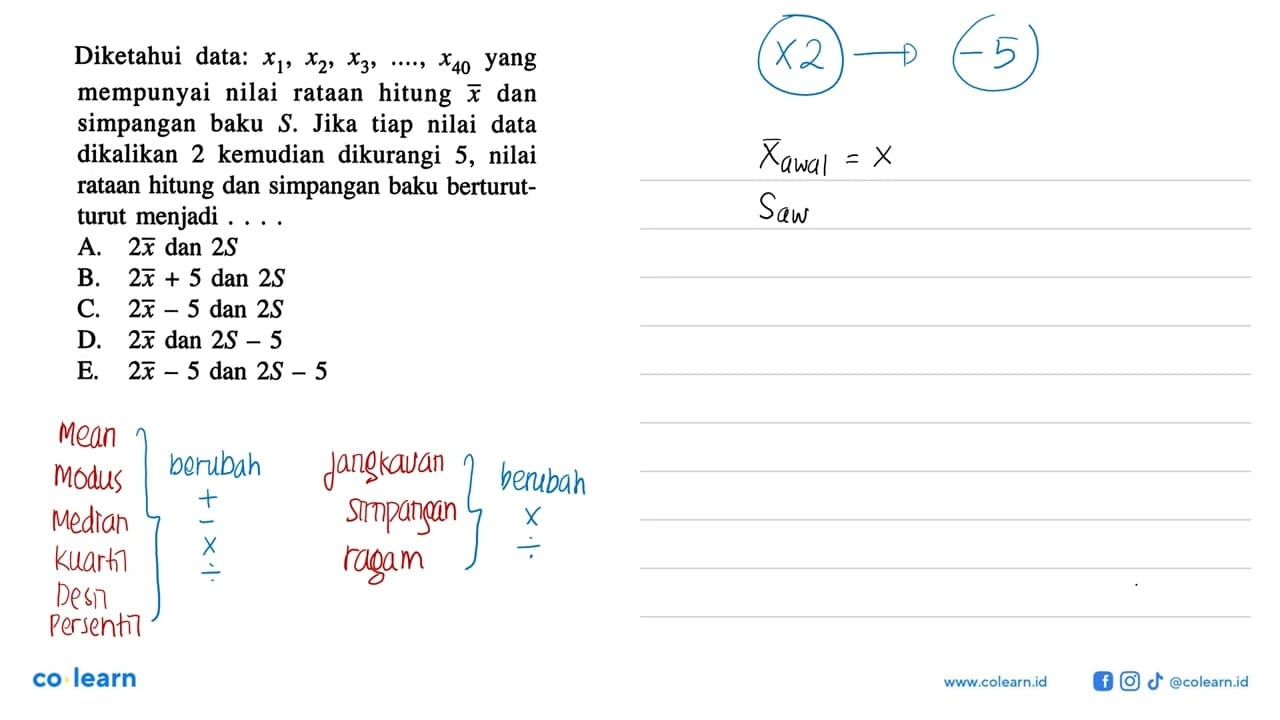 Diketahui data: x₁, x₂, x₃, ...., x₄₀ yang
mempunyai nilai rataan hitung x̄ dan
simpangan baku S. Jika tiap nilai data
dikalikan 2 kemudian dikurangi 5, nilai
rataan hitung dan simpangan baku berturut-
turut menjadi . . . .
A. 2x̄ dan 2S
B. 2x̄ + 5 dan 2S
C. 2x̄ – 5 dan 2S
D. 2x̄ dan 2S – 5
E. 2x̄ – 5 dan 2S – 5
Mean
Modus
Median
Kuartil
Desil
Persentil
berubah
+
−
×
÷
Jangkauan
simpangan
ragam
berubah
×
÷
×2 → −5
x̄awal = x
Saw
co·learn
www.colearn.id
@colearn.id